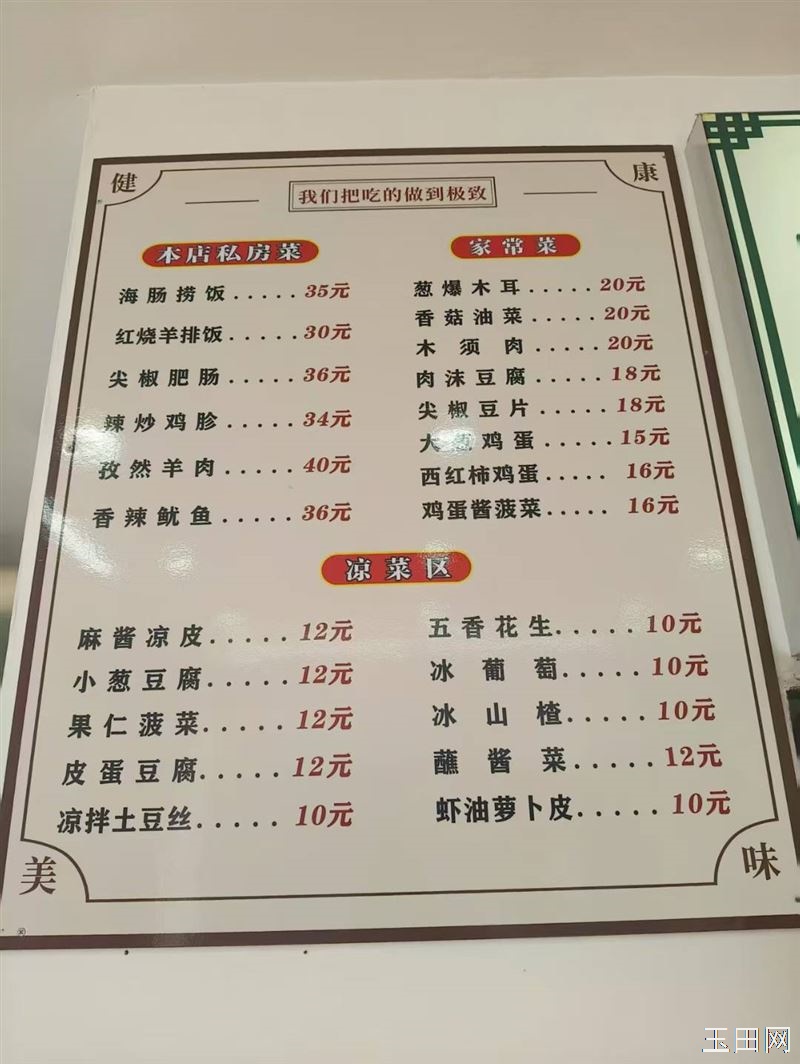 健
康
我们把吃的做到极致
本店私房菜
海肠捞饭.....35元
红烧羊排饭.....30元
尖椒肥肠.....36元
辣炒鸡胗.....34元
孜然羊肉.....40元
香辣鱿鱼.....36元
家常菜
葱爆木耳.....20元
香菇油菜.....20元
木须肉.....20元
肉沫豆腐.....18元
尖椒豆片.....18元
大葱鸡蛋.....15元
西红柿鸡蛋.....16元
鸡蛋酱菠菜.....16元
凉菜区
麻酱凉皮.....12元
小葱豆腐.....12元
果仁菠菜.....12元
皮蛋豆腐.....12元
凉拌土豆丝.....10元
五香花生.....10元
冰葡萄.....10元
冰山楂.....10元
蘸酱菜.....12元
虾油萝卜皮.....10元
美
味
玉田网